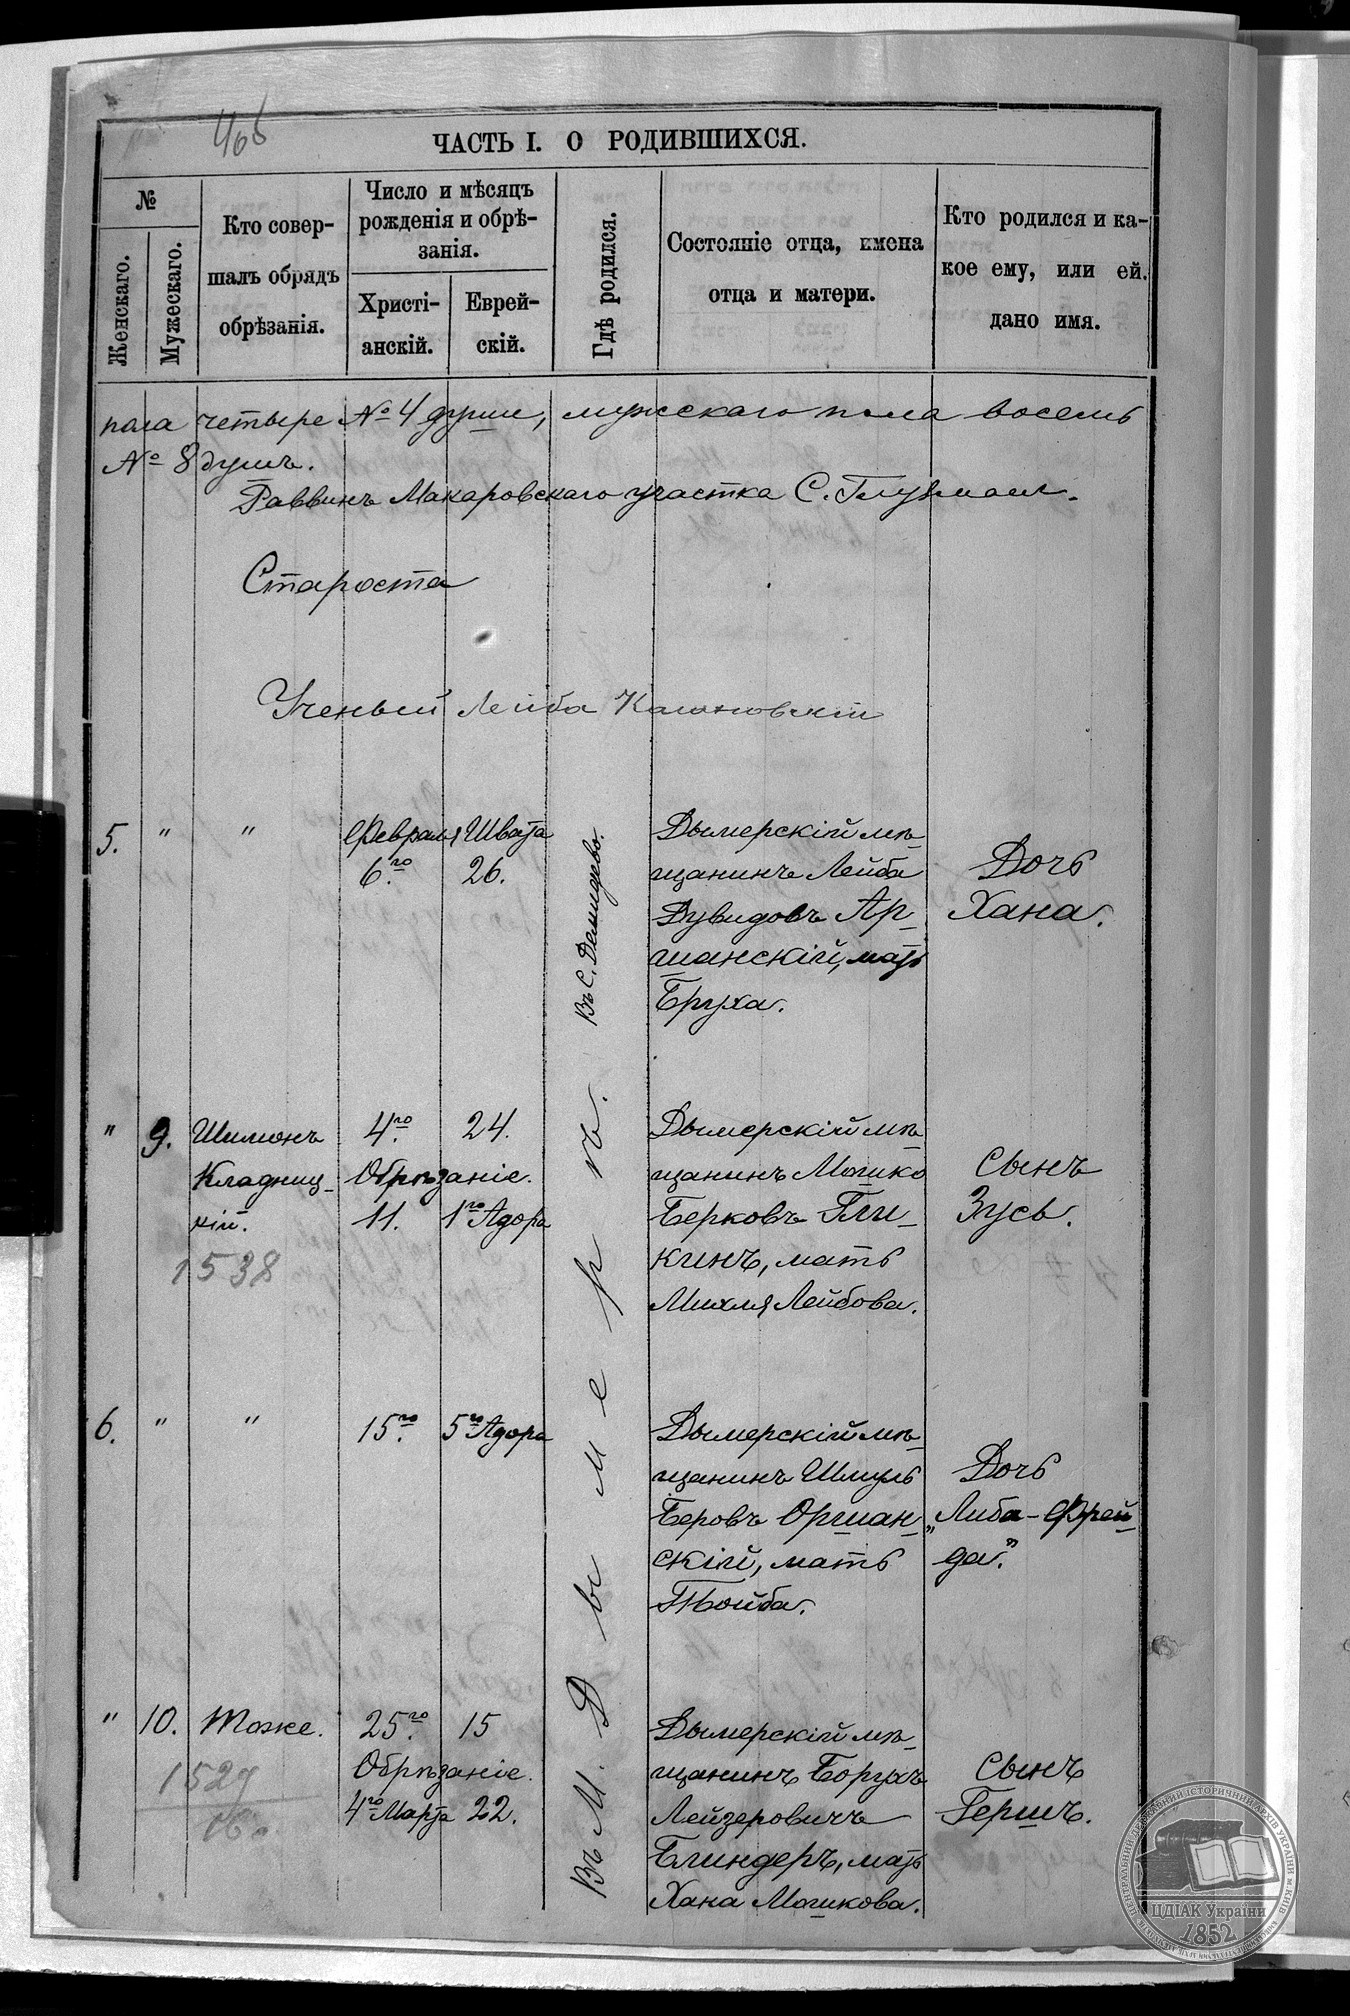 466
ЧАСТЬ I. О РОДИВШИХСЯ.
№
Женскаго.
Мужескаго.
Кто совер-
шалъ обрядъ
обрѣзанія.
Число и мѣсяцъ
рожденія и обрѣ-
занія.
Христі-
анскій.
Еврей-
скій.
Гдѣ родился.
Состояніе отца, имена
отца и матери.
Кто родился и ка-
кое ему, или ей.
дано имя.
пола четыре № 4 души, мужскаго пола восемь
№ 8 душъ.
Раввинъ Макаровскаго участка С. Глузман.
Староста
Ученый Лейба
5. " " Февраля Швата
6.го 26.
Въ С. Демидово.
Дымерскій мѣ-
щанинъ Лейба
Дувидовъ Ар-
шанскій, мать
Бруха.
Дочь
Хана.
" 9. Шимонъ
Кладниц-
кій.
1538
4.го 24.
Обрѣзаніе.
11. 1го Адора
Дымерскій мѣ-
щанинъ Мошко
Берковъ Гли-
кинъ, мать
Михля Лейбова.
Сынъ
Зусь.
6. " " 15.го 5го Адора
Дымерскій мѣ-
щанинъ Шмуль
Беровъ Оршан-
скій, мать
Тойба.
Дочь
„Либа-Фрей-
да."
Въ М. Дымерѣ.
" 10. Тоже.
1527
25.го 15
Обрѣзаніе.
4го Марта 22.
Дымерскій мѣ-
щанинъ Борухъ
Лейзеровичъ
Блиндеръ, мать
Хана Мошкова.
Сынъ
Гершъ.
ЦЕНТРАЛЬНИЙ ДЕРЖАВНИЙ ІСТОРИЧНИЙ АРХІВ УКРАЇНИ м. КИЇВ
ЦДІАК України
1852